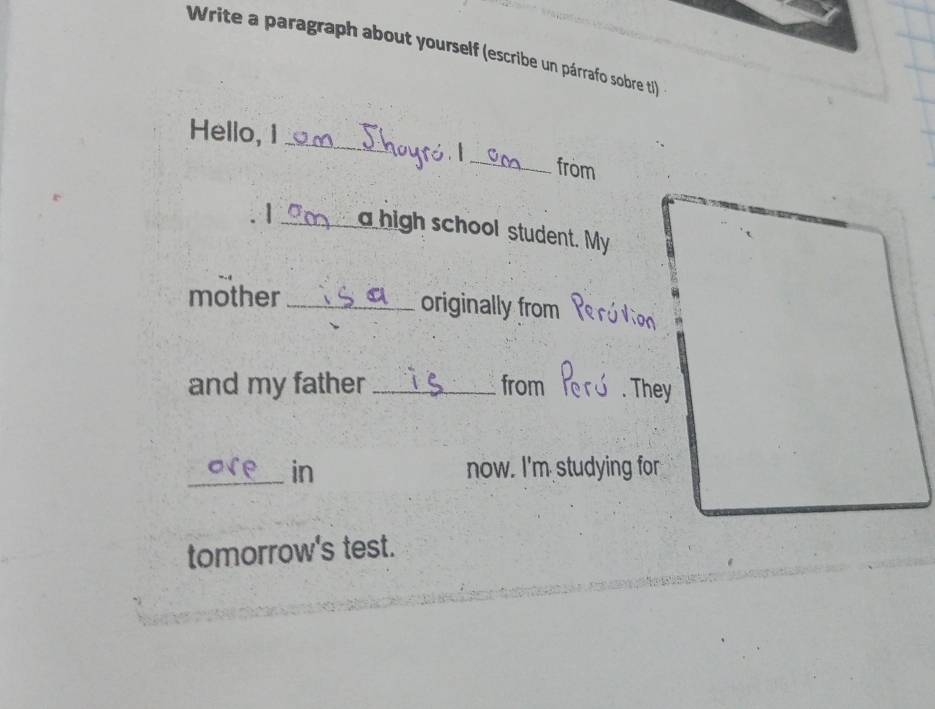 Write a paragraph about yourself (escribe un párrafo sobre ti)
Hello, I am Shayró. I am from
. I am a high school student. My
mother is a originally from Perúvian
and my father is from Perú. They
are in now. I'm studying for
tomorrow's test.